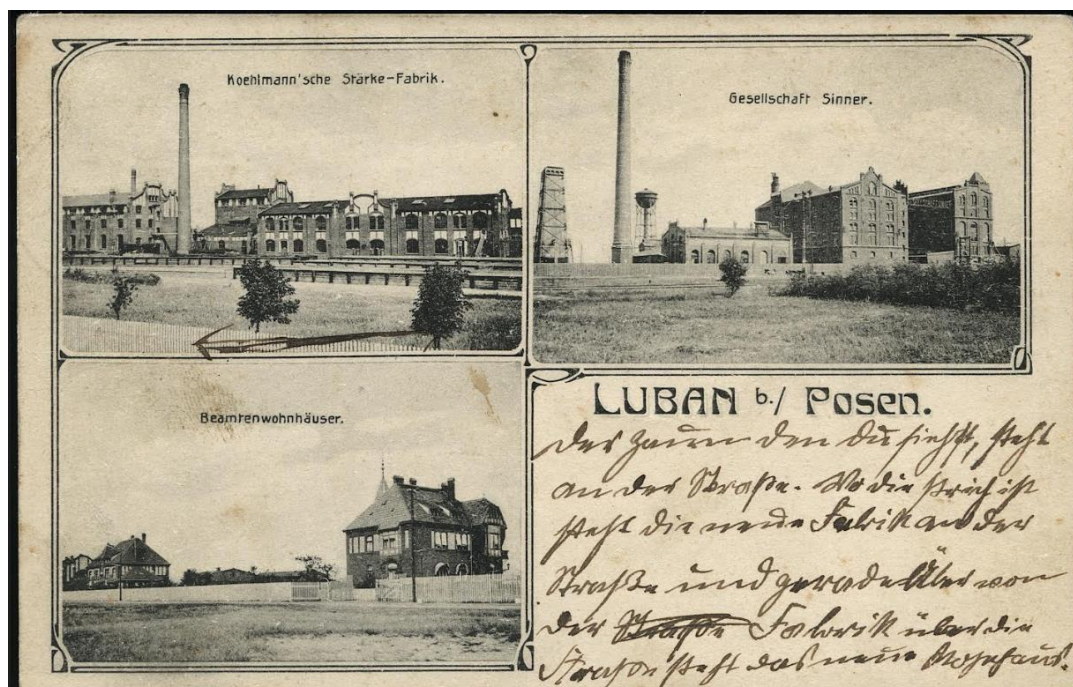 Koehlmann'sche Stärke-Fabrik.
Gesellschaft Sinner.
Beamtenwohnhäuser.
LUBAN b./ Posen.
der Zaun den du siehst, steht
an der Straße. Wo die strich ist
steht die neue Fabrik an der
Straße und gerade über von
der Straße Fabrik über die
Straße steht das neue Wohnhaus.